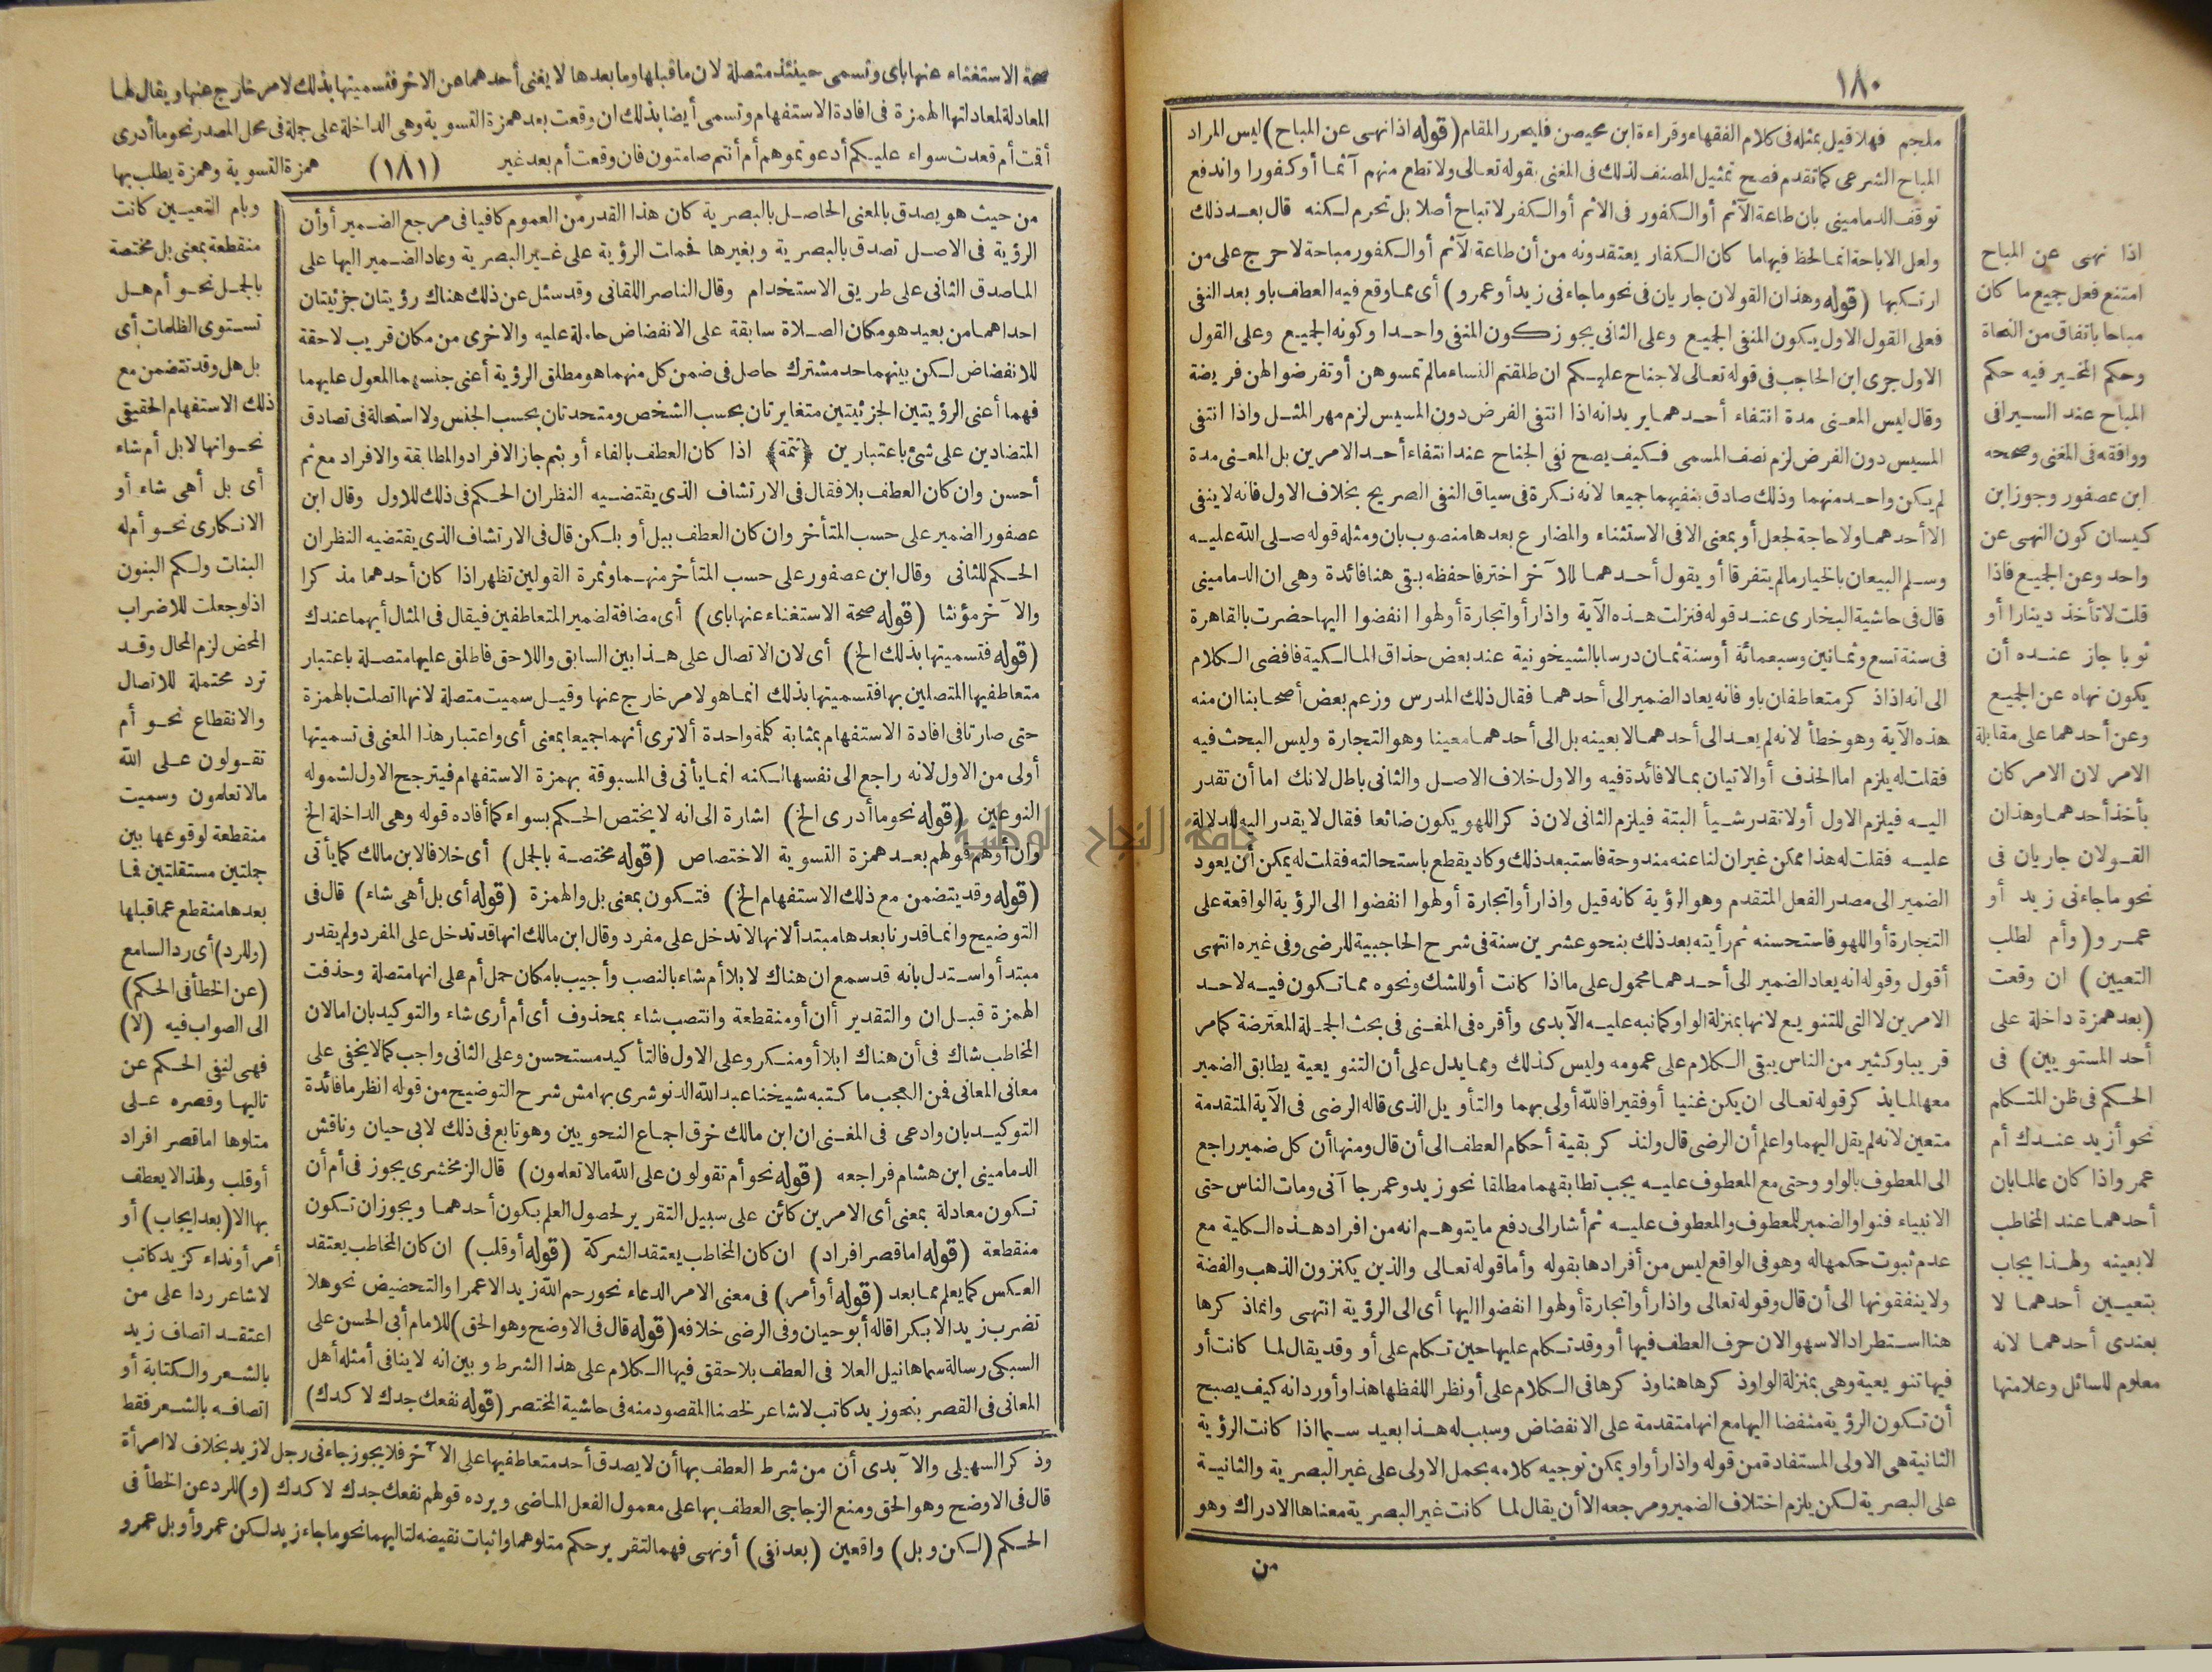 ١٨٠
ملجم فهلا قيل بمثله فى كلام الفقهاء وقراءة ابن محيصن فليحرر المقام (قوله اذا نهى عن المباح) ليس المراد
المباح الشرعى كما تقدم فصح تمثيل المصنف لذلك فى المغنى بقوله تعالى ولا تطع منهم آثما أو كفورا واندفع
توقف الدمامينى بان طاعة الآثم أو الكفور فى الاثم أو الكفر لا تباح أصلا بل تحرم لكنه قال بعد ذلك
ولعل الاباحة انما لحظ فيها ما كان الكفار يعتقدونه من أن طاعة الآثم أو الكفور مباحة لا حرج على من
ارتكبها (قوله وهذان القولان جاريان فى نحو ما جاءنى زيد أو عمرو) أى مما وقع فيه العطف باو بعد النفى
فعلى القول الاول يكون المنفى الجميع وعلى الثانى يجوز كون المنفى واحدا وكونه الجميع وعلى القول
الاول جرى ابن الحاجب فى قوله تعالى لا جناح عليكم ان طلقتم النساء ما لم تمسوهن أو تفرضوا لهن فريضة
وقال ليس المعنى مدة انتفاء أحدهما يريد انه اذا انتفى الفرض دون المسيس لزم مهر المثل واذا انتفى
المسيس دون الفرض لزم نصف المسمى فكيف يصح نفى الجناح عند انتفاء أحد الامرين بل المعنى مدة
لم يكن واحد منهما وذلك صادق بنفيهما جميعا لانه نكرة فى سياق النفى الصريح بخلاف الاول فانه لا ينفى
الا أحدهما ولا حاجة لجعل أو بمعنى الا فى الاستثناء والمضارع بعدها منصوب بان ومثله قوله صلى الله عليه
وسلم البيعان بالخيار ما لم يتفرقا أو يقول أحدهما للآخر اختر فاحفظه بقى هنا فائدة وهى ان الدمامينى
قال فى حاشية البخارى عند قوله فنزلت هذه الآية واذا رأوا تجارة أو لهوا انفضوا اليها حضرت بالقاهرة
فى سنة تسع وثمانين وسبعمائة أو سنة ثمان درسا بالشيخونية عند بعض حذاق المالكية فافضى الكلام
الى انه اذا ذكر متعاطفان باو فانه يعاد الضمير الى أحدهما فقال ذلك المدرس وزعم بعض أصحابنا ان منه
هذه الآية وهو خطأ لانه لم يعد الى أحدهما لا بعينه بل الى أحدهما معينا وهو التجارة وليس البحث فيه
فقلت له يلزم اما الحذف أو الاتيان بما لا فائدة فيه والاول خلاف الاصل والثانى باطل لانك اما أن تقدر
اليه فيلزم الاول أو لا تقدر شيأ البتة فيلزم الثانى لان ذكر اللهو يكون ضائعا فقال لا يقدر اليه للدلالة
عليه فقلت له هذا ممكن غير ان لنا عنه مندوحة فاستبعد ذلك وكاد يقطع باستحالته فقلت له يمكن أن يعود
الضمير الى مصدر الفعل المتقدم وهو الرؤية كانه قيل واذا رأوا تجارة أو لهوا انفضوا الى الرؤية الواقعة على
التجارة أو اللهو فاستحسنه ثم رأيته بعد ذلك بنحو عشرين سنة فى شرح الحاجبية للرضى وفى غيره انتهى
أقول وقوله انه يعاد الضمير الى أحدهما محمول على ما اذا كانت أو للشك ونحوه مما تكون فيه لاحد
الامرين لا التى للتنويع لانها بمنزلة الواو كما نبه عليه الآبدى وأقره فى المغنى فى بحث الجملة المعترضة كما مر
قريبا وكثير من الناس يبقى الكلام على عمومه وليس كذلك ومما يدل على أن التنويعية يطابق الضمير
معها لما يذكر قوله تعالى ان يكن غنيا أو فقيرا فالله أولى بهما والتأويل الذى قاله الرضى فى الآية المتقدمة
متعين لانه لم يقل اليهما واعلم أن الرضى قال ولنذكر بقية أحكام العطف الى أن قال ومنها أن كل ضمير راجع
الى المعطوف بالواو وحتى مع المعطوف عليه يجب تطابقهما مطلقا نحو زيد وعمر جا آنى ومات الناس حتى
الانبياء فنوا والضمير للمعطوف والمعطوف عليه ثم أشار الى دفع ما يتوهم انه من افراد هذه الكلية مع
عدم ثبوت حكمها له وهو فى الواقع ليس من أفرادها بقوله وأما قوله تعالى والذين يكنزون الذهب والفضة
ولا ينفقونها الى أن قال وقوله تعالى واذا رأوا تجارة أو لهوا انفضوا اليها أى الى الرؤية انتهى وانما ذكرها
هنا استطرادا لا سهوا لان حرف العطف فيها أو وقد تكلم عليها حين تكلم على أو وقد يقال لما كانت أو
فيها تنويعية وهى بمنزلة الواو ذكرها هنا وذكرها فى الكلام على أو نظر اللفظها هذا وأورد انه كيف يصبح
أن تكون الرؤية منفضا اليها مع انها متقدمة على الانفضاض وسبب له هذا بعيد سيما اذا كانت الرؤية
الثانية هى الاولى المستفادة من قوله واذا رأوا ويمكن توجيه كلامه بحمل الاولى على غير البصرية والثانية
على البصرية لكن يلزم اختلاف الضمير ومرجعه الا أن يقال لما كانت غير البصرية معناها الادراك وهو
من
اذا نهى عن المباح
امتنع فعل جميع ما كان
مباحا باتفاق من النحاة
وحكم المخير فيه حكم
المباح عند السيرافى
ووافقه فى المغنى وصححه
ابن عصفور وجوز ابن
كيسان كون النهى عن
واحد وعن الجميع فاذا
قلت لا تأخذ دينارا أو
ثوبا جاز عنده أن
يكون نهاه عن الجميع
وعن أحدهما على مقابلة
الامر لان الامر كان
بأخذ أحدهما وهذان
القولان جاريان فى
نحو ما جاءنى زيد أو
عمرو (و أم لطلب
التعيين) ان وقعت
(بعد همزة داخلة على
أحد المستويين) فى
الحكم فى ظن المتكلم
نحو أزيد عندك أم
عمرو اذا كان عالما بان
أحدهما عند المخاطب
لا بعينه ولهذا يجاب
بتعيين أحدهما لا
بعندى أحدهما لانه
معلوم للسائل وعلامتها
صحة الاستغناء عنها باى وتسمى حينئذ متصلة لان ما قبلها وما بعدها لا يغنى أحدهما عن الاخر فتسميتها بذلك لامر خارج عنها ويقال لها
المعادلة لمعادلتها الهمزة فى افادة الاستفهام وتسمى أيضا بذلك ان وقعت بعد همزة التسوية وهى الداخلة على جملة فى محل المصدر نحو ما أدرى
أقمت أم قعدت سواء عليكم أدعوتموهم أم أنتم صامتون فان وقعت أم بعد غير (١٨١) همزة التسوية وهمزة يطلب بها
من حيث هو يصدق بالمعنى الحاصل بالبصرية كان هذا القدر من العموم كافيا فى مرجع الضمير أو أن
الرؤية فى الاصل تصدق بالبصرية وبغيرها فحملت الرؤية على غير البصرية وعاد الضمير اليها على
الماصدق الثانى على طريق الاستخدام وقال الناصر اللقانى وقد سئل عن ذلك هناك رؤيتان جزئيتان
احداهما من بعيد هو مكان الصلاة سابقة على الانفضاض حاملة عليه والاخرى من مكان قريب لاحقة
للانفضاض لكن بينهما حد مشترك حاصل فى ضمن كل منهما هو مطلق الرؤية أعنى جنسهما المعول عليهما
فهما أعنى الرؤيتين الجزئيتين متغايرتان بحسب الشخص ومتحدتان بحسب الجنس ولا استحالة فى تصادق
المتضادين على شئ باعتبارين ﴿تتمة﴾ اذا كان العطف بالفاء أو بثم جاز الافراد والمطابقة والافراد مع ثم
أحسن وان كان العطف بلا فقال فى الارتشاف الذى يقتضيه النظر ان الحكم فى ذلك للاول وقال ابن
عصفور الضمير على حسب المتأخر وان كان العطف ببل أو بلكن قال فى الارتشاف الذى يقتضيه النظر ان
الحكم للثانى وقال ابن عصفور على حسب المتأخر منهما وثمرة القولين تظهر اذا كان أحدهما مذكرا
والآخر مؤنثا (قوله صحة الاستغناء عنها باى) أى مضافة لضمير المتعاطفين فيقال فى المثال أيهما عندك
(قوله فتسميتها بذلك الخ) أى لان الاتصال على هذا بين السابق واللاحق فاطلق عليها متصلة باعتبار
متعاطفيها المتصلين بها فتسميتها بذلك انما هو لامر خارج عنها وقيل سميت متصلة لانها اتصلت بالهمزة
حتى صارتا فى افادة الاستفهام بمثابة كلمة واحدة ألا ترى أنهما جميعا بمعنى أى واعتبار هذا المعنى فى تسميتها
أولى من الاول لانه راجع الى نفسها لكنه انما يأتى فى المسبوقة بهمزة الاستفهام فيترجح الاول لشموله
النوعين (قوله نحو ما أدرى الخ) اشارة الى انه لا يختص الحكم بسواء كما أفاده قوله وهى الداخلة الخ
وان أوهم قولهم بعد همزة التسوية الاختصاص (قوله مختصة بالجمل) أى خلافا لابن مالك كما يأتى
(قوله وقد يتضمن مع ذلك الاستفهام الخ) فتكون بمعنى بل والهمزة (قوله أى بل أهى شاء) قال فى
التوضيح وانما قدرنا بعدها مبتدأ لانها لا تدخل على مفرد وقال ابن مالك انها قد تدخل على المفرد ولم يقدر
مبتدأ واستدل بانه قد سمع ان هناك لابلا أم شاء بالنصب وأجيب بامكان حمل أم على انها متصلة وحذفت
الهمزة قبل ان والتقدير أان أو منقطعة وانتصب شاء بمحذوف أى أم أرى شاء والتوكيد بان اما لان
المخاطب شاك فى أن هناك ابلا أو منكر وعلى الاول فالتأكيد مستحسن وعلى الثانى واجب كما لا يخفى على
معانى المعانى فمن العجب ما كتبه شيخنا عبد الله الدنوشرى بهامش شرح التوضيح من قوله انظر ما فائدة
التوكيد بان وادعى فى المغنى ان ابن مالك خرق اجماع النحويين وهو تابع فى ذلك لابى حيان وناقش
الدمامينى ابن هشام فراجعه (قوله نحو أم تقولون على الله ما لا تعلمون) قال الزمخشرى يجوز فى أم أن
تكون معادلة بمعنى أى الامرين كائن على سبيل التقرير لحصول العلم بكون أحدهما ويجوز ان تكون
منقطعة (قوله اما قصر افراد) ان كان المخاطب يعتقد الشركة (قوله أو قلب) ان كان المخاطب يعتقد
العكس كما يعلم مما بعد (قوله أو أمر) فى معنى الامر الدعاء نحو رحم الله زيد الا عمرا والتحضيض نحو هلا
تضرب زيد الا بكرا قاله أبو حيان وفى الرضى خلافه (قوله قال فى الاوضح وهو الحق) للامام أبى الحسن على
السبكى رسالة سماها نيل العلا فى العطف بلا حقق فيها الكلام على هذا الشرط وبين انه لا ينافى أمثله أهل
المعانى فى القصر بنحو زيد كاتب لا شاعر لخصنا المقصود منه فى حاشية المختصر (قوله نفعك جدك لا كدك)
وبام التعيين كانت
منقطعة بمعنى بل مختصة
بالجمل نحو أم هل
تستوى الظلمات أى
بل هل وقد تتضمن مع
ذلك الاستفهام الحقيقى
نحو انها لابل أم شاء
أى بل أهى شاء أو
الانكارى نحو أم له
البنات ولكم البنون
اذ لو جعلت للاضراب
المحض لزم المحال وقد
ترد محتملة للاتصال
والانقطاع نحو أم
تقولون على الله
ما لا تعلمون وسميت
منقطعة لوقوعها بين
جملتين مستقلتين فما
بعدها منقطع عما قبلها
(وللرد) أى رد السامع
(عن الخطأ فى الحكم)
الى الصواب فيه (لا)
فهى لنفى الحكم عن
تاليها وقصره على
متلوها اما قصر افراد
أو قلب ولهذا لا يعطف
بها الا (بعد ايجاب) أو
أمر أو نداء كزيد كاتب
لا شاعر ردا على من
اعتقد اتصاف زيد
بالشعر والكتابة أو
اتصافه بالشعر فقط
وذكر السهيلى والآبدى أن من شرط العطف بها أن لا يصدق أحد متعاطفيها على الآخر فلا يجوز جاءنى رجل لا زيد بخلاف لا امرأة
قال فى الاوضح وهو الحق ومنع الزجاجى العطف بها على معمول الفعل الماضى ويرده قولهم نفعك جدك لا كدك (و) للرد عن الخطأ فى
الحكم (لكن وبل) واقعين (بعد نفى) أو نهى فهما لتقرير حكم متلوهما واثبات نقيضه لتاليهما نحو ما جاء زيد لكن عمرو أو بل عمرو
جامعة النجاح الوطنية